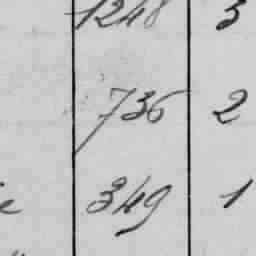 1248 3
736 2
349 1